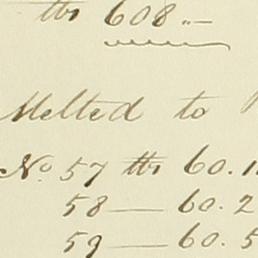 lbs 608.—
Melted to
No 57 lbs 60.1
58 — 60.2
59 — 60.5